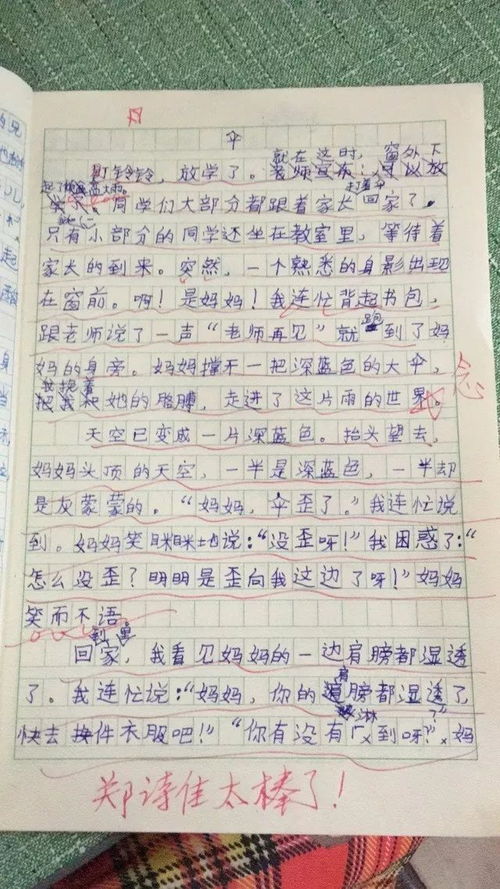 伞
就在这时，窗外下
叮铃铃，放学了。
起了倾盆大雨。
打着伞
同学们大部分都跟着家长回家了。
只有小部分的同学还坐在教室里，等待着
家长的到来。突然，一个熟悉的身影出现
在窗前。啊！是妈妈！我连忙背起书包，
跟老师说了一声“老师再见”就跑到了妈
妈的身旁。妈妈撑开一把深蓝色的大伞，
我挽着
她的胳膊，走进了这片雨的世界。
天空已变成一片深蓝色。抬头望去，
妈妈头顶的天空，一半是深蓝色，一半却
是灰蒙蒙的。“妈妈，伞歪了。”我连忙说
到。妈妈笑眯眯地说：“没歪呀！”我困惑了：“
怎么没歪？明明是歪向我这边了呀！”妈妈
笑而不语。
到
回家，我看见妈妈的一边肩膀都湿透
了。我连忙说：“妈妈，你的肩膀都湿透了
快去换件衣服吧！”“你有没有淋到呀？”妈
郑诗佳太棒了！